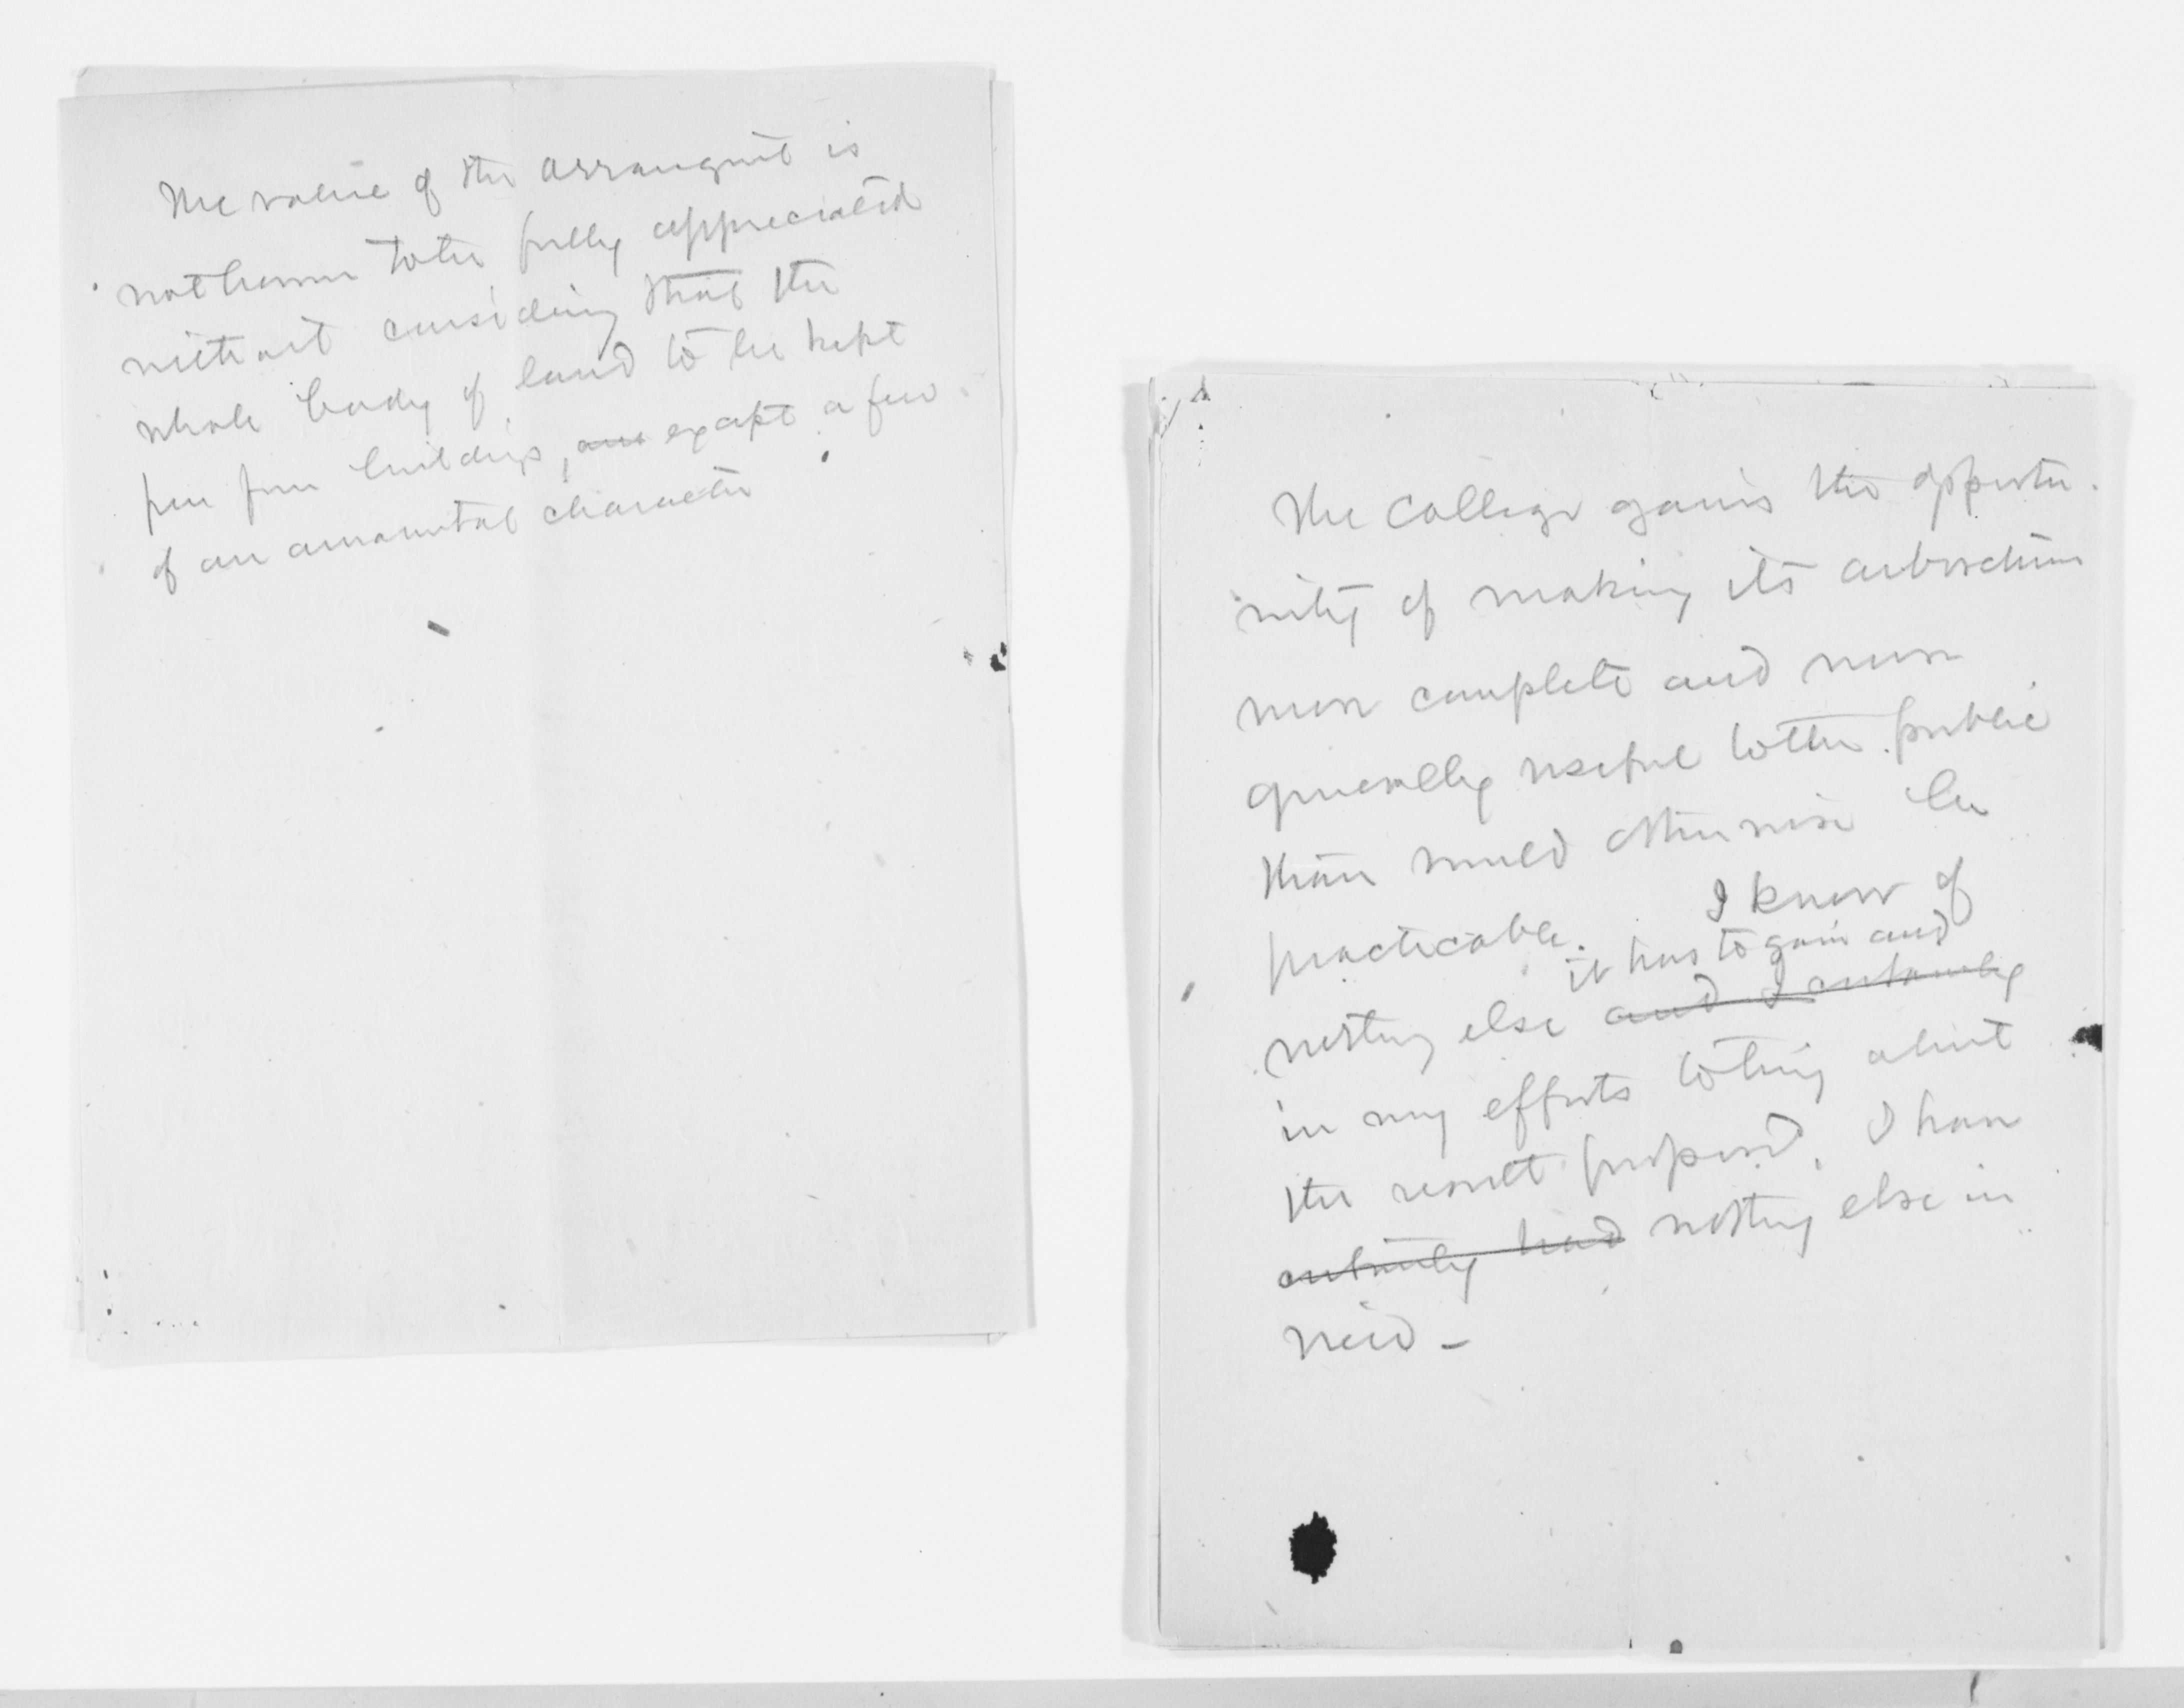 The value of the arrangmt is
not however to be fully appreciated
without considering that the
whole body of land to be kept
free from buildings, are except a few
of an ornamental character
The College gains the opportu-
nity of making its arboretum
more complete and more
generally useful to the public
than would otherwise be
practicable. I know of
it has to gain and
nothing else and I certainly
in my efforts to bring about
the result proposed, I have
certainly had nothing else in
view -